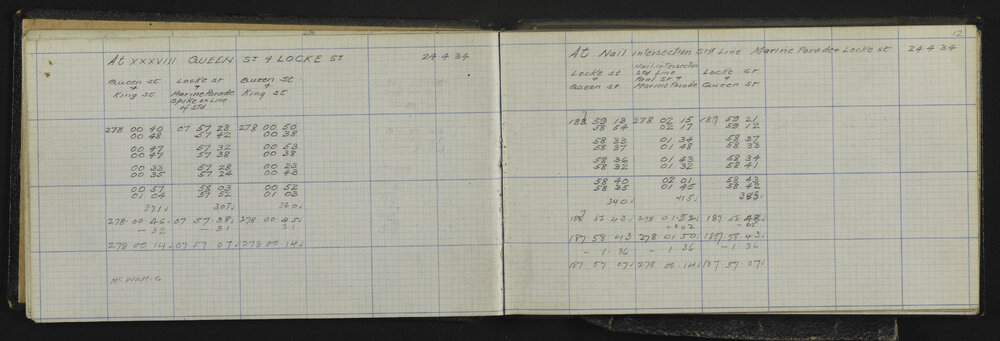 At XXXVIII QUEEN ST & LOCKE ST 24.4.34
Queen St Locke St Queen St
& & &
King St Marine Parade King St.
Spike on Line
of Std
278 00 40 07 57 28 278 00 50
00 48 57 42 00 38
00 47 57 32 00 53
00 47 57 38 00 38
00 33 57 28 00 23
00 35 57 24 00 43
00 57 58 03 00 52
01 04 57 52 01 03
371 307 360
278.00.46 07 57.38 278 00.45
- 32 - 31 31
278 00 14 07.57 07 278 00.14
12
At Nail intersection Std Line Marine Parade & Locke St 24.4.34
Locke St Nail intersection Locke St
& Std Line &
Queen St Peal St & Queen St
Marine Parade
59 13 278 02 15 187 59 21
58 54 02 17 59 12
58 33 01 34 58 37
58 37 01 48 58 38
58 36 01 43 58 34
58 32 01 32 58 41
58 40 02 01 58 43
58 35 01 45 58 42
340 415
278 01.52 187.58
-02 -05
187 58 43 278 01.50 187.58.43
- 1.36 - 1 36 - 1 36
187.57.07 278 00.14 187 57.07